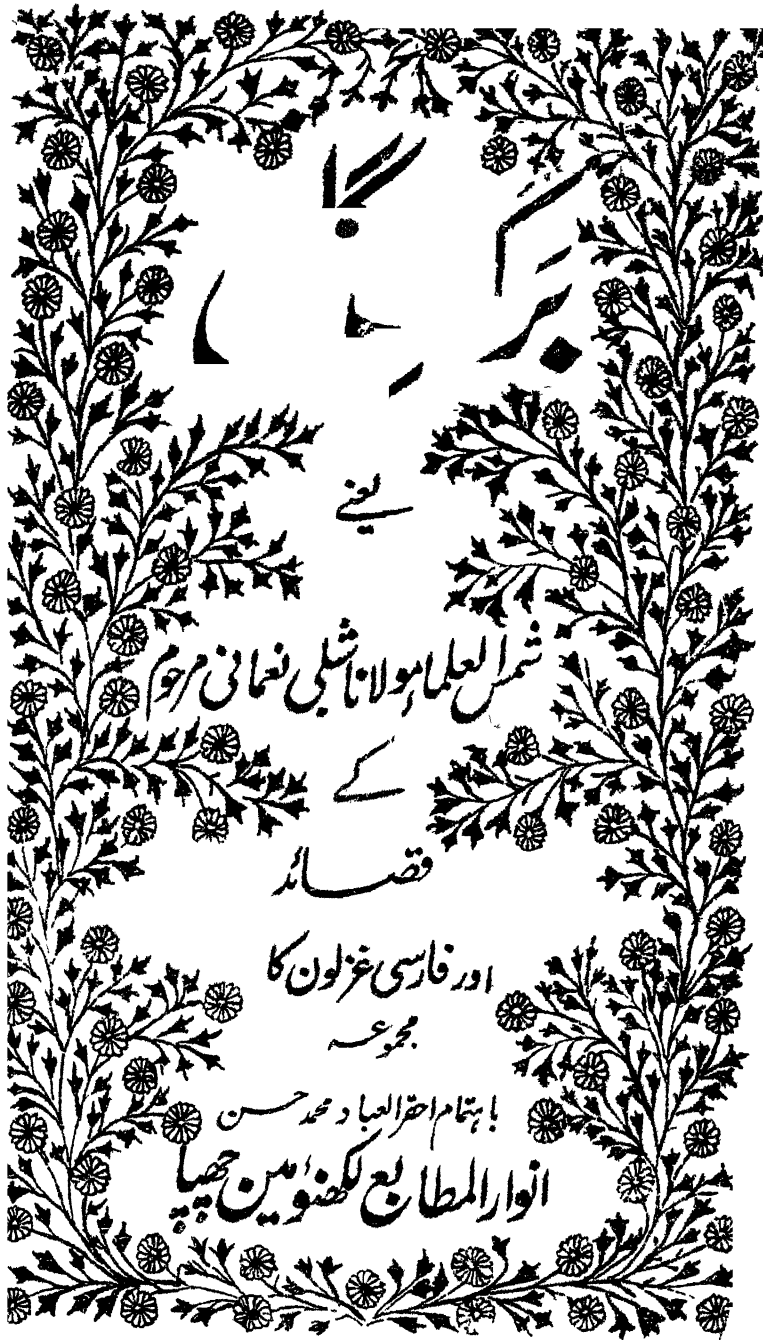 برگ گل
یعنے
شمس العلماء مولانا شبلی نعمانی مرحوم
کے
قصائد
اور فارسی غزلون کا
مجموعہ
باہتمام احقر العباد محمد حسن
انوار المطابع لکھنؤ مین چھپا